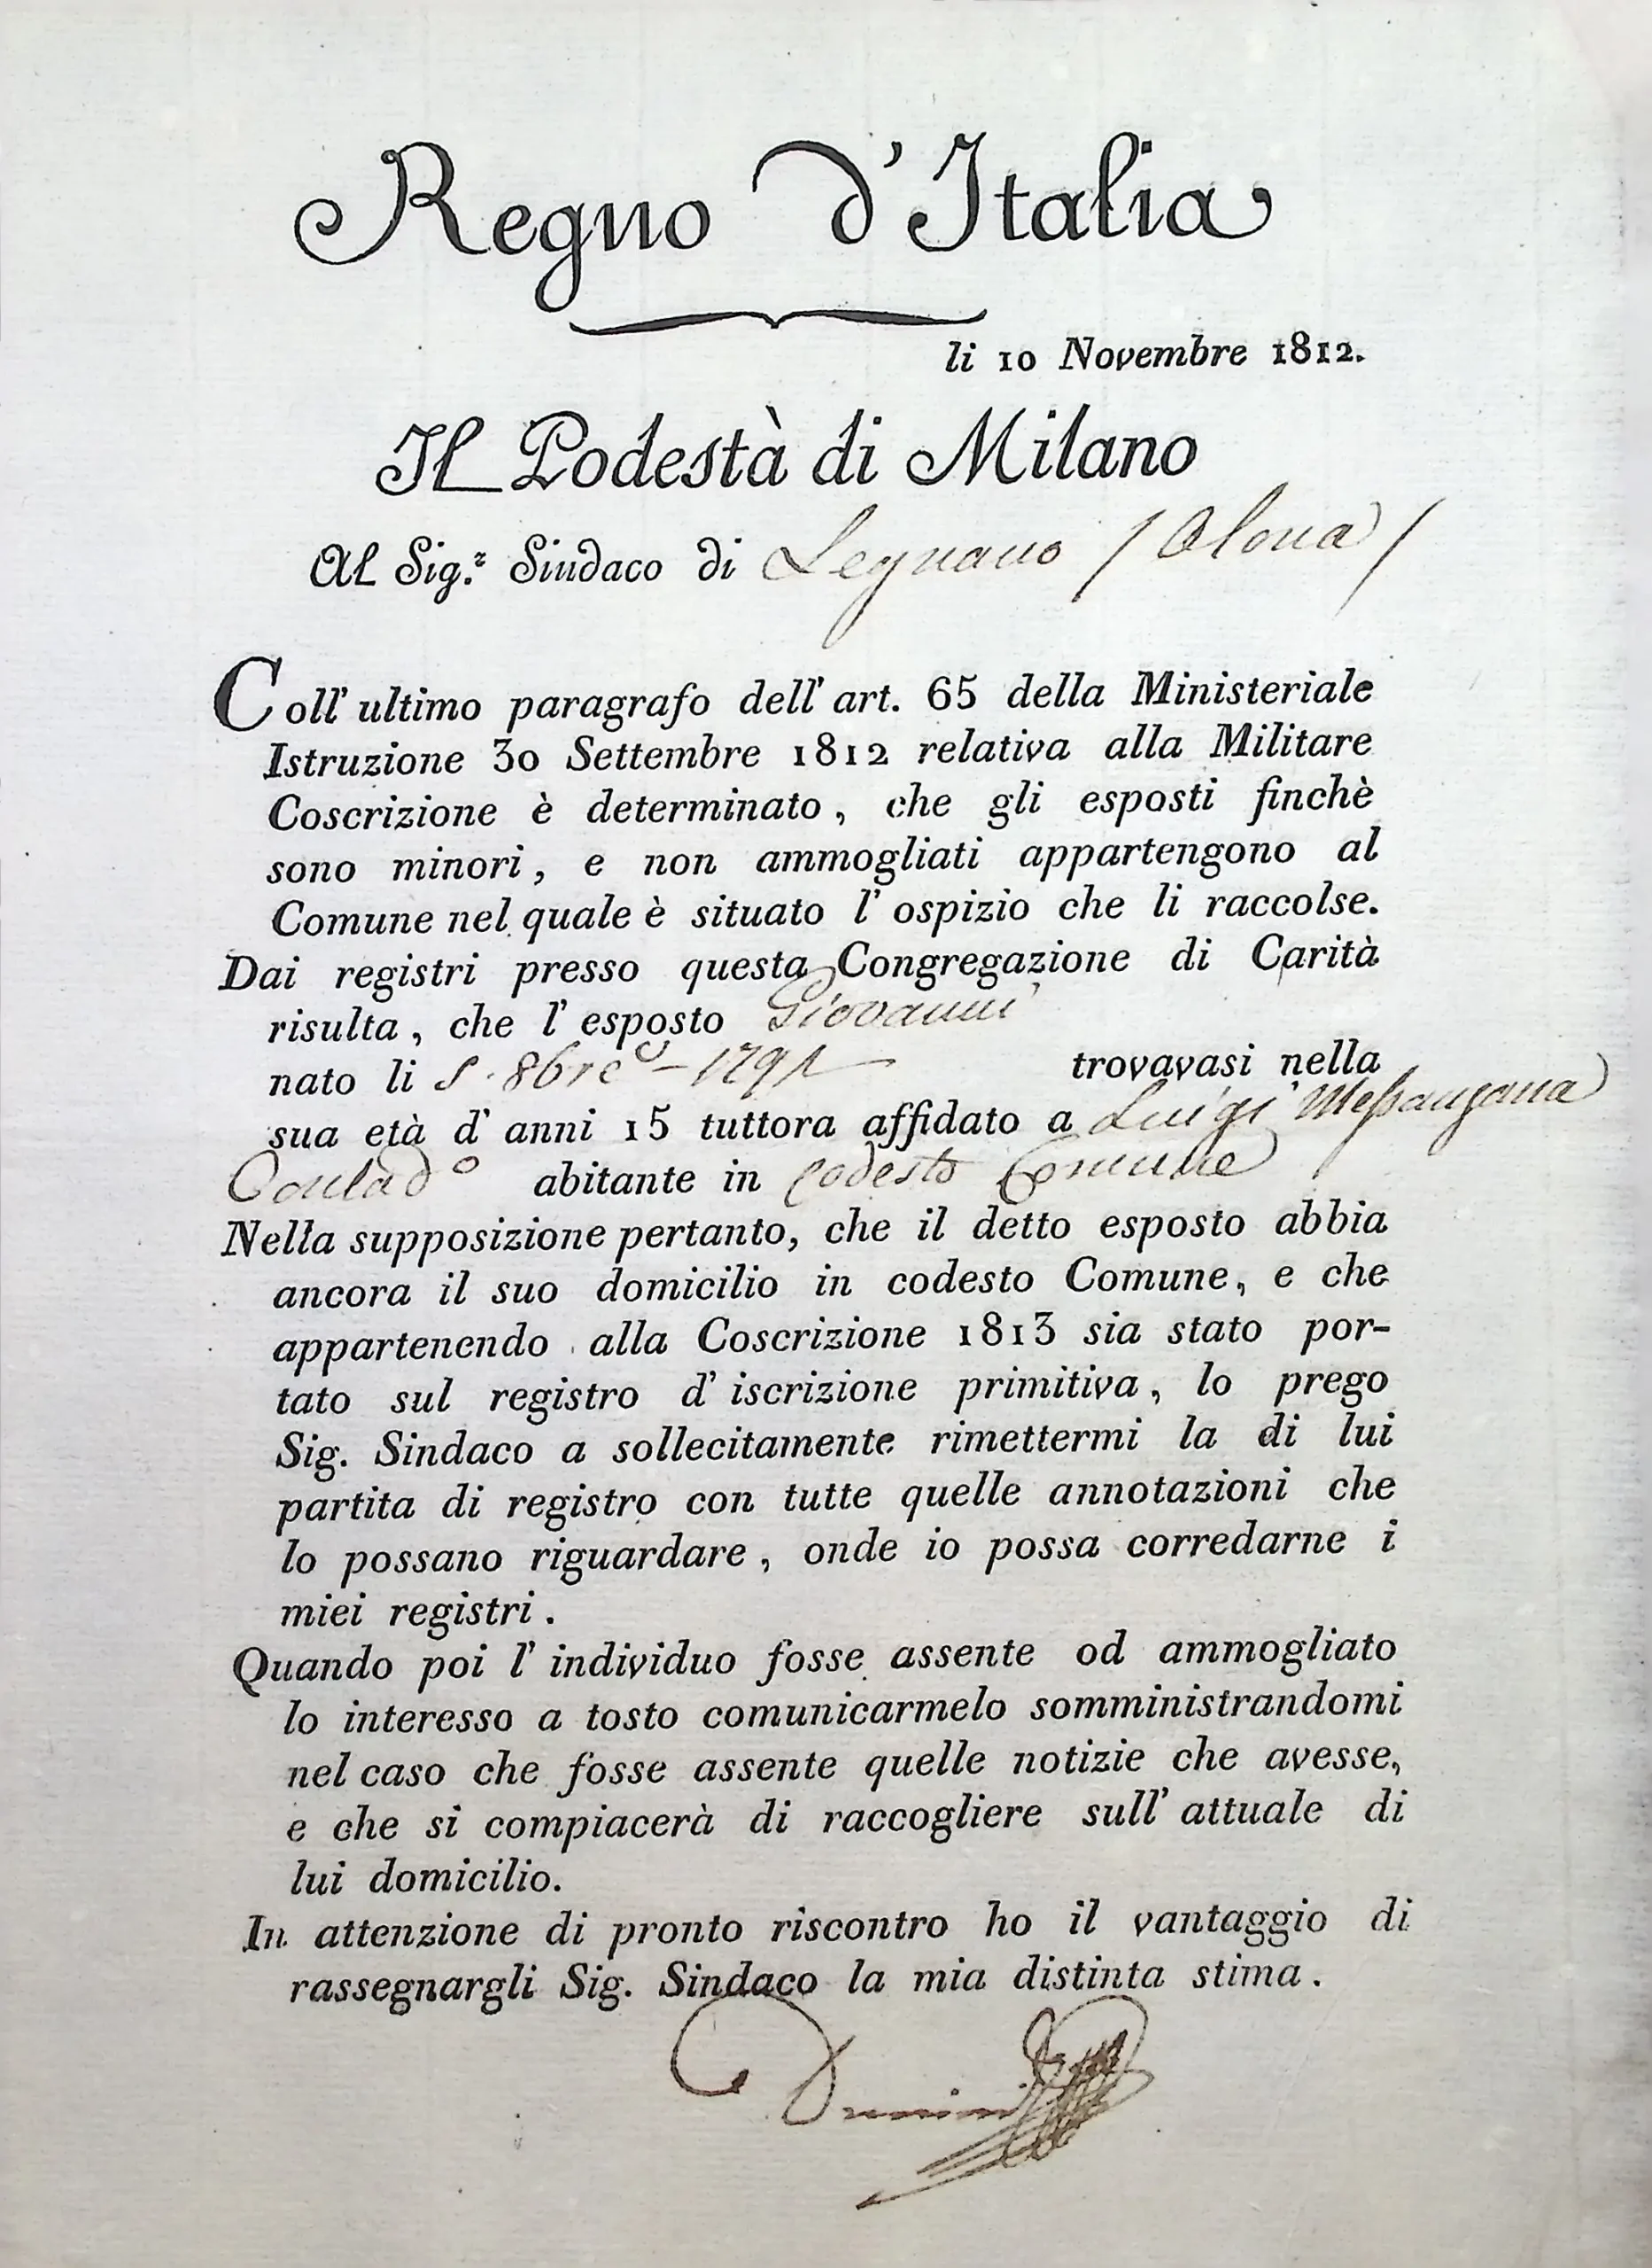 Regno d'Italia
li 10 Novembre 1812.
Il Podestà di Milano
Al Sig.r Sindaco di Legnano / Olona /
Coll' ultimo paragrafo dell' art. 65 della Ministeriale
Istruzione 30 Settembre 1812 relativa alla Militare
Coscrizione è determinato, che gli esposti finchè
sono minori, e non ammogliati appartengono al
Comune nel quale è situato l' ospizio che li raccolse.
Dai registri presso questa Congregazione di Carità
risulta, che l' esposto Giovanni
nato li 8bre - trovavasi nella
sua età d' anni 15 tuttora affidato a Luigi
abitante in codesto Comune
Nella supposizione pertanto, che il detto esposto abbia
ancora il suo domicilio in codesto Comune, e che
appartenendo alla Coscrizione 1813 sia stato por-
tato sul registro d' iscrizione primitiva, lo prego
Sig. Sindaco a sollecitamente rimettermi la di lui
partita di registro con tutte quelle annotazioni che
lo possano riguardare, onde io possa corredarne i
miei registri.
Quando poi l' individuo fosse assente od ammogliato
lo interesso a tosto comunicarmelo somministrandomi
nel caso che fosse assente quelle notizie che avesse,
e che si compiacerà di raccogliere sull' attuale di
lui domicilio.
In attenzione di pronto riscontro ho il vantaggio di
rassegnargli Sig. Sindaco la mia distinta stima.